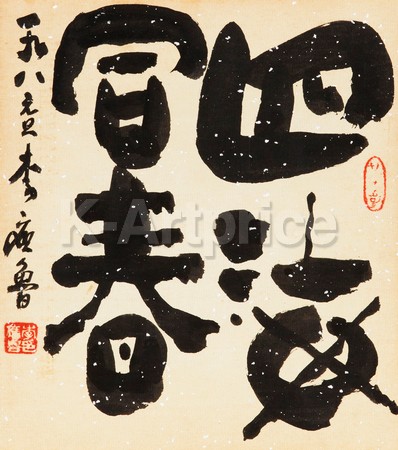 四海
同春
一九八元旦李魯
K-Artprice